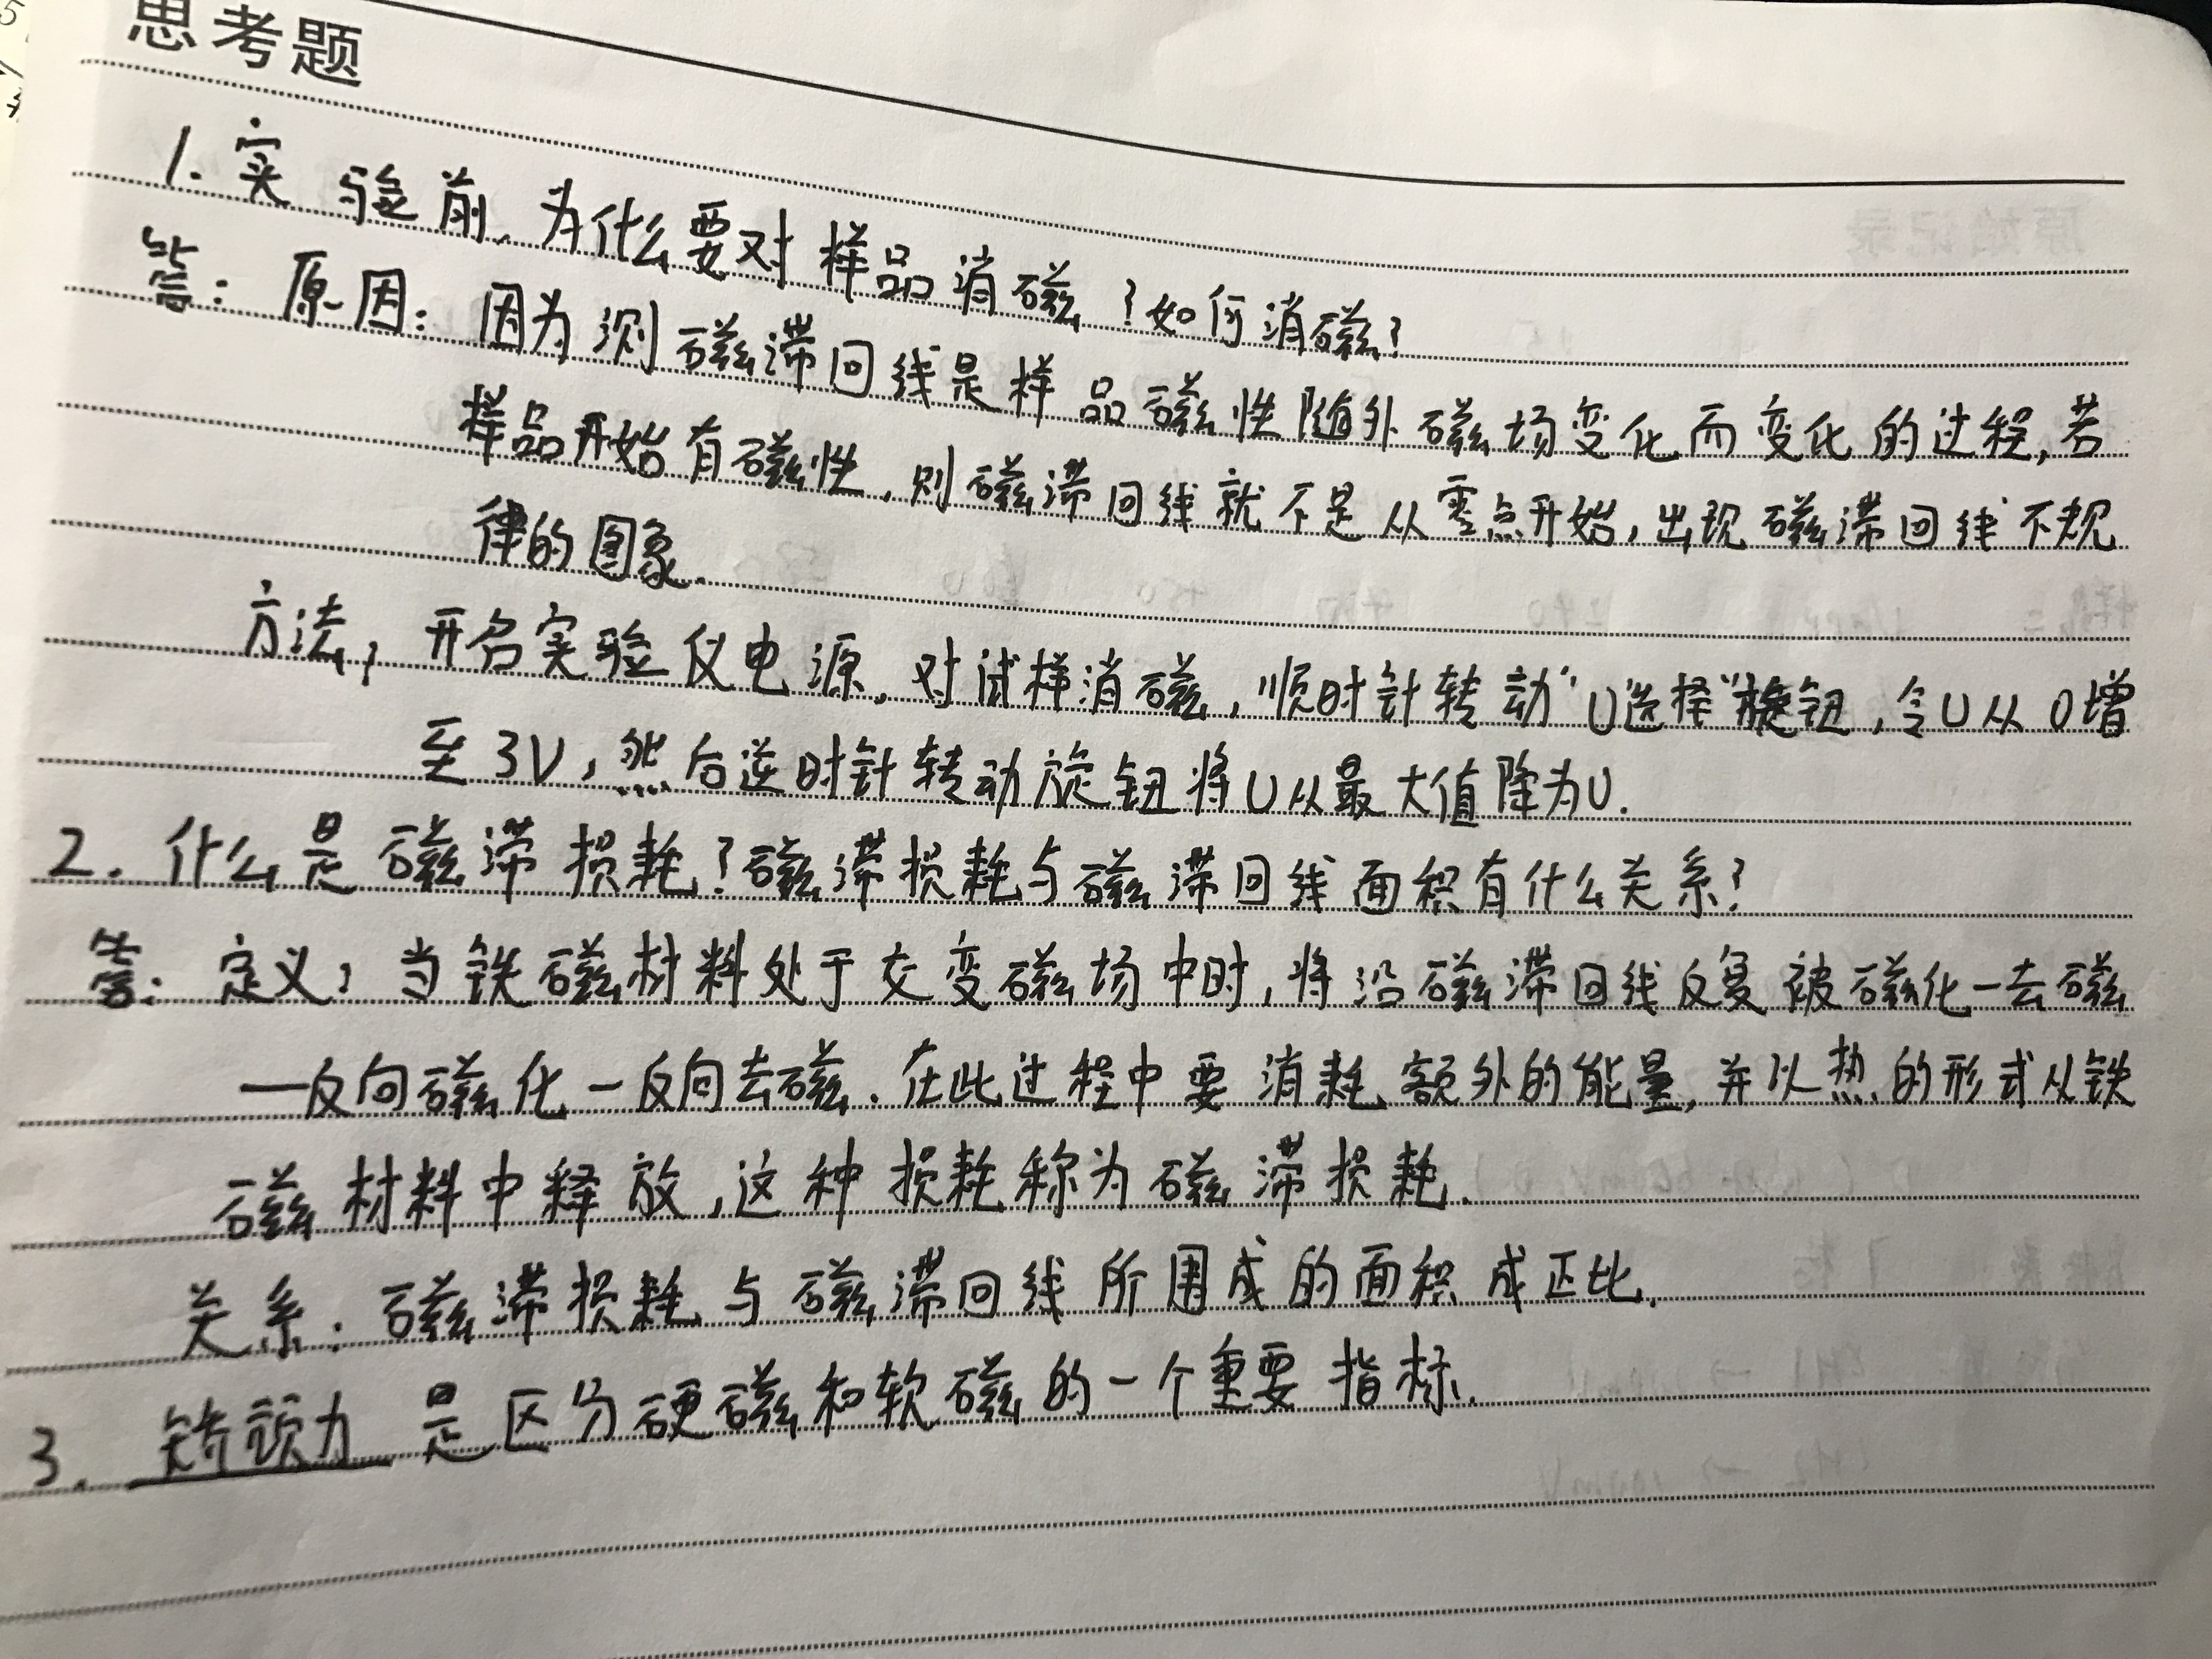 思考题
1. 实验前,为什么要对样品消磁?如何消磁?
答:原因:因为测磁滞回线是样品磁性随外磁场变化而变化的过程,若
样品开始有磁性,则磁滞回线就不是从零点开始,出现磁滞回线不规
律的图象.
方法:开启实验仪电源,对试样消磁,顺时针转动“U选择”旋钮,令U从0增
至3V,然后逆时针转动旋钮将U从最大值降为0.
2. 什么是磁滞损耗?磁滞损耗与磁滞回线面积有什么关系?
答:定义:当铁磁材料处于交变磁场中时,将沿磁滞回线反复被磁化—去磁
—反向磁化—反向去磁.在此过程中要消耗额外的能量,并以热的形式从铁
磁材料中释放,这种损耗称为磁滞损耗.
关系:磁滞损耗与磁滞回线所围成的面积成正比.
3. 矫顽力是区分硬磁和软磁的一个重要指标.